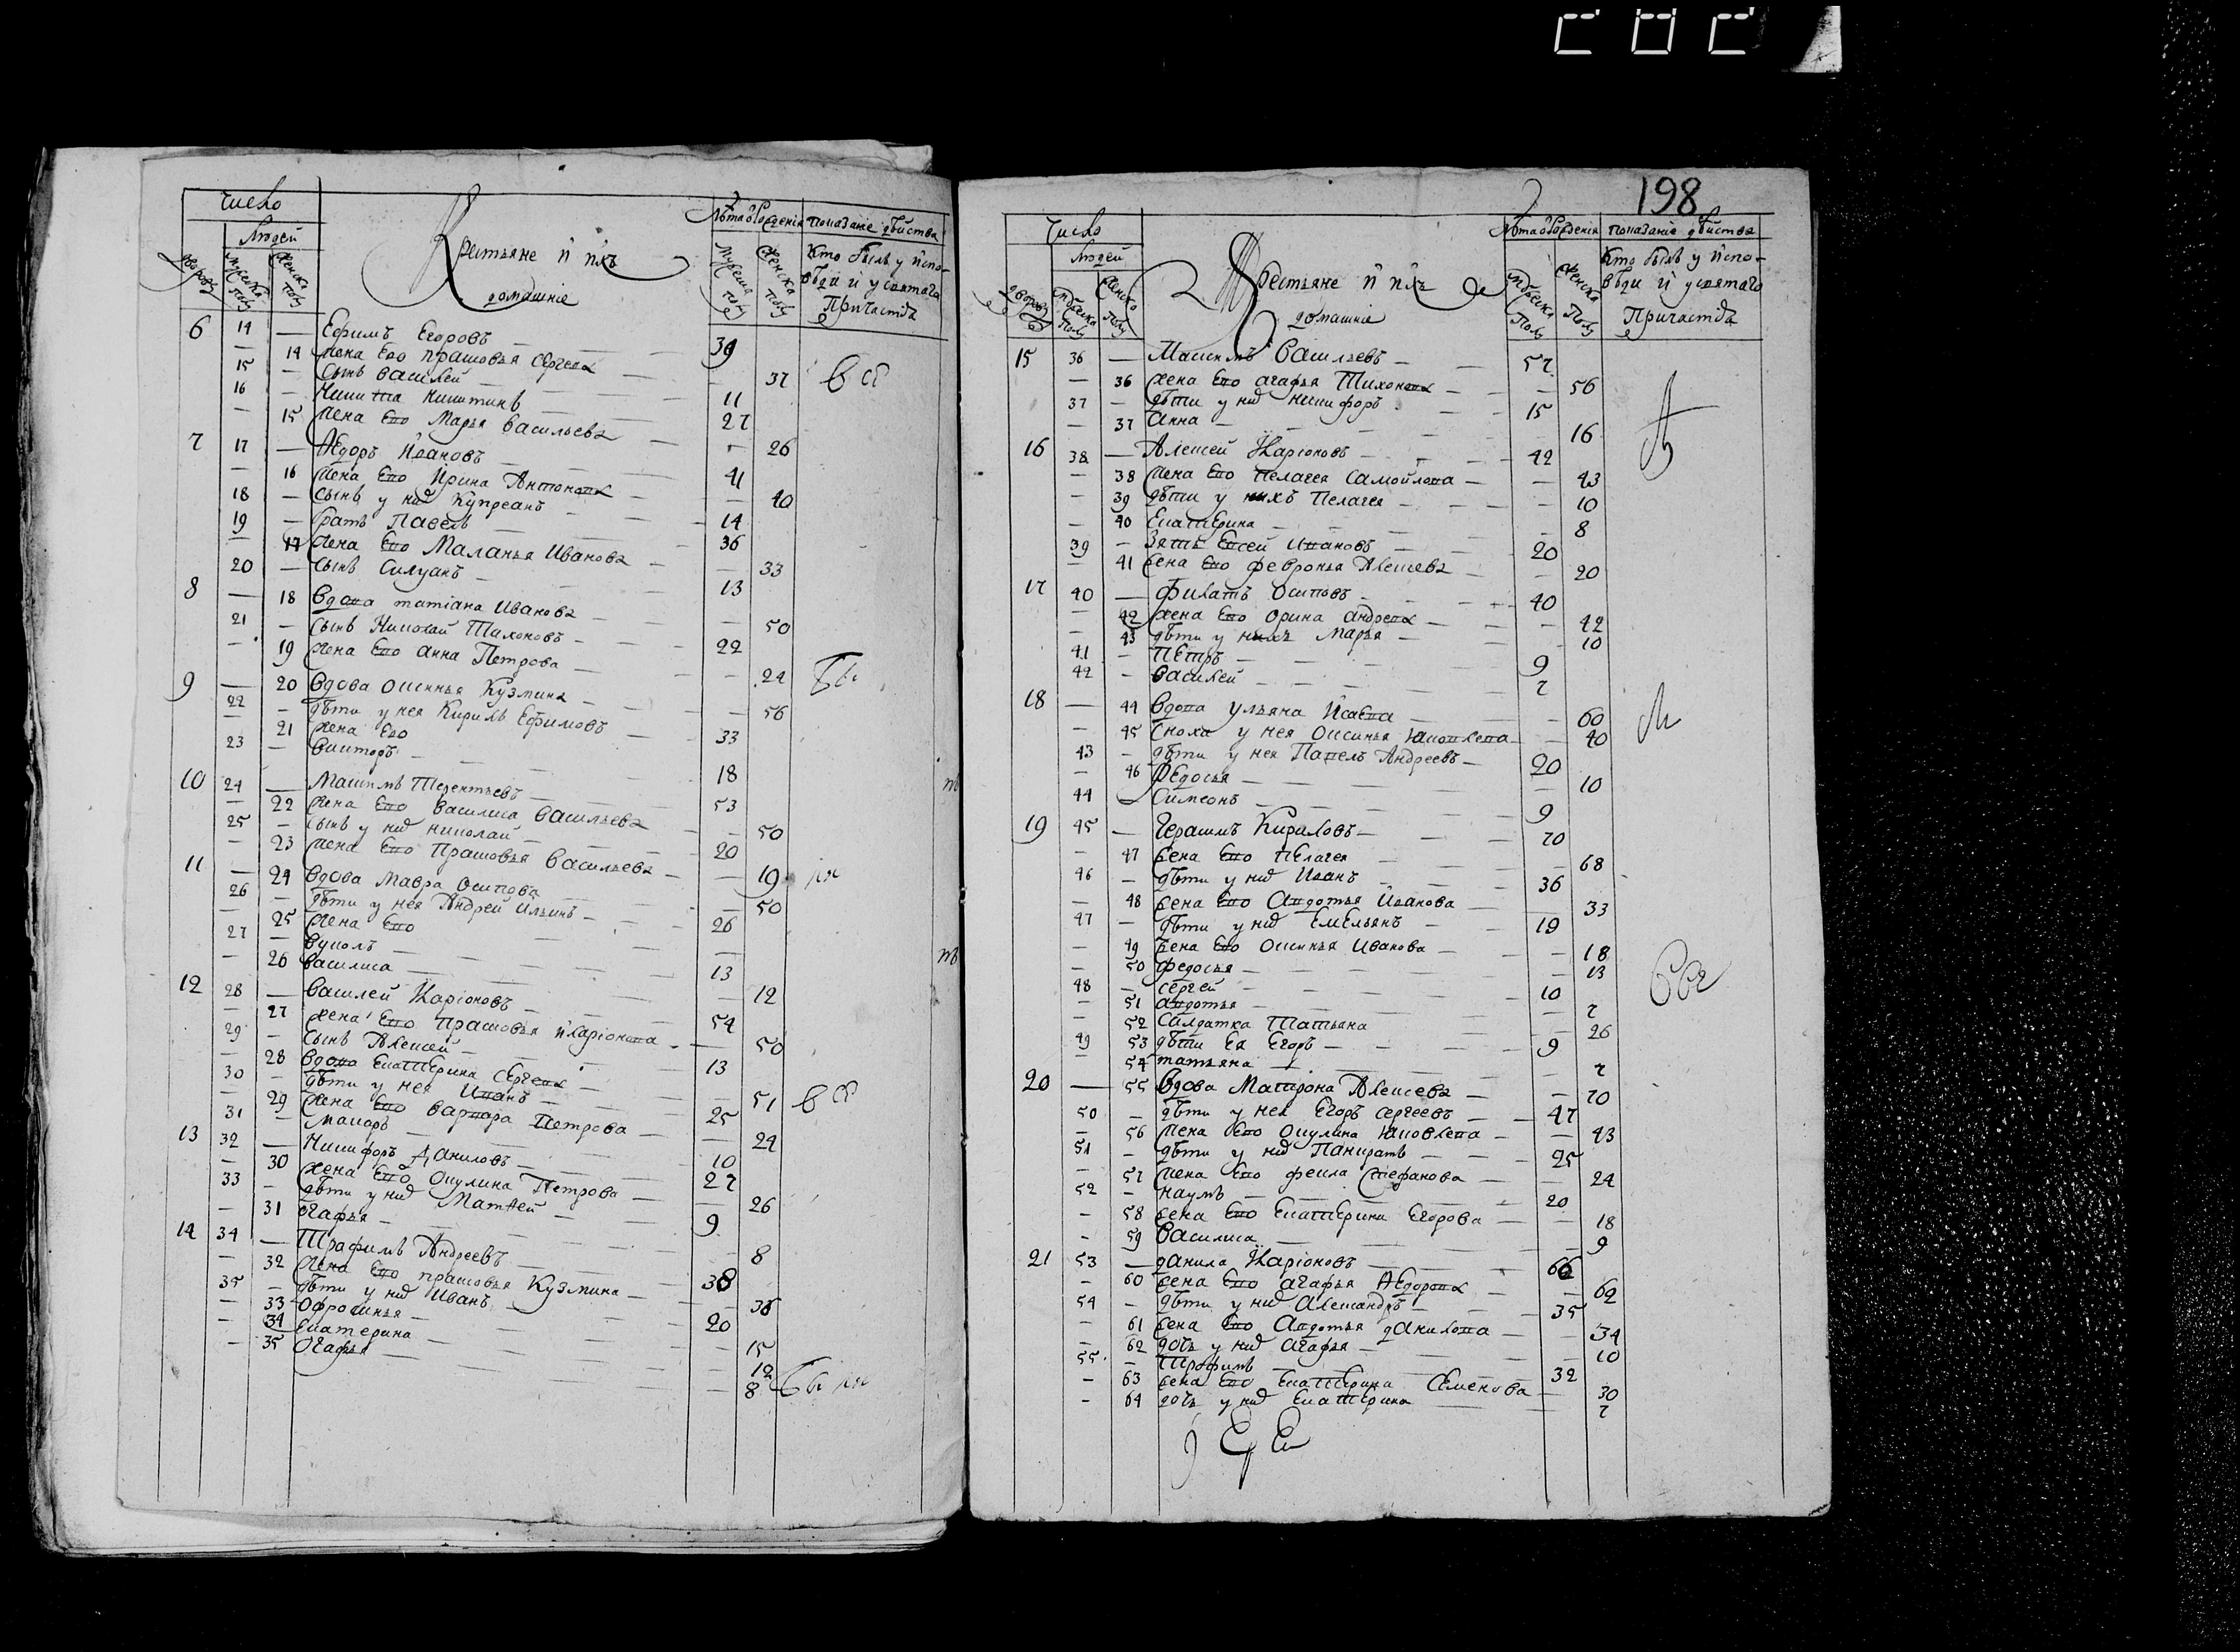 198
Число
Людей
дворовъ
мужеска полу
женска полу
Крестьяне и ихъ домашніе
Лѣта от рожденія
Мужеска полу
Женска полу
Показаніе дѣйства
Кто былъ у испо-
вѣди и у святаго
Причастія
6 14 — Ефимъ Егоровъ — 39
— 14 жена Его прасковья Сергева — 37
15 — сынъ василей — 11
16 — Никита Никитинъ — 27
— 15 жена Его Марья васильева — 26
7 17 — Ѳедоръ Ивановъ — 41
— 16 жена Его Ирина Антонова — 40
18 — сынъ у них Купреанъ — 14
19 — братъ Павелъ — 36
— 17 жена Его Маланья Иванова — 33
20 — сынъ Силуанъ — 13
8 — 18 вдова татіана Иванова — 50
21 — сынъ Николай Тихоновъ — 22
— 19 жена Его анна Петрова — 24
9 — 20 вдова Оксинья Кузмина — 56
22 — дѣти у нея Кирилъ Ефимовъ — 33
— 21 жена Его
23 — викторъ — 18
10 24 — Максимъ Терентьевъ — 53
— 22 жена Его василиса васильева — 50
25 — сынъ у них николай — 20
— 23 жена Его Прасковья васильева — 19
11 — 24 вдова Мавра Осипова — 50
26 — дѣти у нея Андрей Ильинъ — 26
— 25 жена Его —
27 — вуколъ — 13
— 26 василиса — 12
12 28 — василей Иларіоновъ — 54
— 27 жена Его Прасковья иларіонова — 50
29 — сынъ Алексей — 13
— 28 вдова Екатерина Сергева — 51
30 — дѣти у нея Иванъ — 25
— 29 жена Его варвара Петрова — 24
31 — макоръ — 10
13 32 — Никифоръ Даниловъ — 27
— 30 жена Его Окулина Петрова — 26
33 — дѣти у них Матѳей — 9
— 31 огафья — 8
14 34 — Трафимъ Андреевъ — 38
— 32 жена Его прасковья Кузмина — 36
35 — дѣти у них Иванъ — 20
— 33 Офросинья — 15
— 34 Екатерина — 12
— 35 Огафья — 8
Число
Людей
дворовъ
мужеска Полу
женска Полу
Крестьяне и ихъ домашніе
Лѣта от рожденія
мужеска Полу
женска Полу
показаніе дѣйства
Кто былъ у испо-
вѣди и у святаго
Причастія
15 36 — Максимъ васильевъ — 57
— 36 жена Его агафья Тихонова — 56
37 — дѣти у них никифоръ — 15
— 37 Анна — 16
16 38 — Алексей Иларіоновъ — 42
— 38 жена Его Пелагея Самойлова — 43
— 39 дѣти у нихъ Пелагея — 10
— 40 Екатерина — 8
39 — Зять Евсей Ивановъ — 20
— 41 жена Его февронья Алексева — 20
17 40 — Филатъ Осиповъ — 40
— 42 жена Его орина андрева — 42
— 43 дѣти у нихъ Марья — 10
41 — Пётръ — 9
42 — василей — 7
18 — 44 вдова ульяна Исаева — 60
— 45 сноха у нея Оксинья Яковлева — 40
43 — дѣти у нея Павелъ Андреевъ — 20
— 46 Ѳедосья — 10
44 — Симеонъ — 9
19 45 — Герасимъ Кириловъ — 70
— 47 жена Его Пелагея — 68
46 — дѣти у них Иванъ — 36
— 48 жена Его Авдотья Иванова — 33
47 — дѣти у них Емельянъ — 19
— 49 жена Его Оксинья Иванова — 18
— 50 федосья — 13
48 — сергей — 10
— 51 авдотья — 7
— 52 Салдатка Татьяна — 26
49 53 дѣти Ея Егоръ — 9
— 54 татьяна — 7
20 — 55 вдова Матрона Алексева — 70
50 — дѣти у нея Егоръ сергеевъ — 47
— 56 жена Его окулина Яковлева — 43
51 — дѣти у них Панкратъ — 25
— 57 жена Его фекла Стефанова — 24
52 — наумъ — 20
— 58 жена Его Екатерина Егорова — 18
— 59 василиса — 9
21 53 — данила Иларіоновъ — 66
— 60 жена Его агафья Ѳедорова — 62
54 — дѣти у них Александръ — 35
— 61 жена Его Авдотья данилова — 34
— 62 дочь у них агафья — 10
55 — Трофимъ — 32
— 63 жена Его Екатерина Семенова — 30
— 64 дочь у них Екатерина — 7